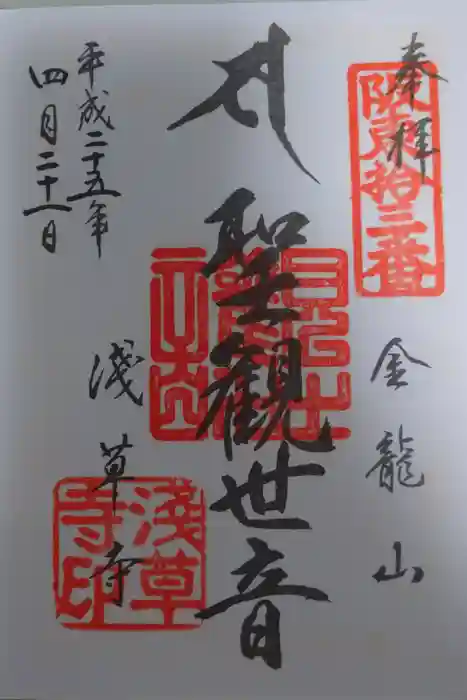 奉拝
阪東拾三番
金龍山
聖観世音
淺草寺
淺草寺印
平成二十五年
四月二十一日